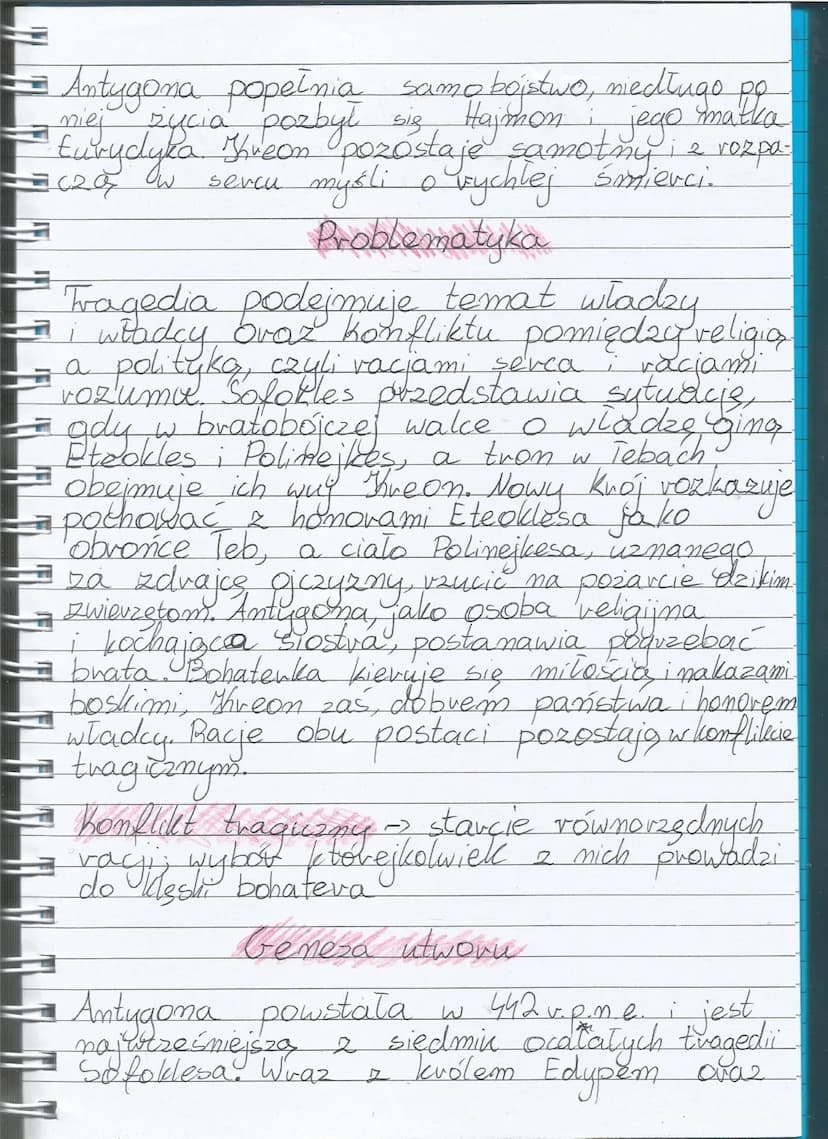 Antygona popełnia samobójstwo, niedługo po
niej życia pozbył się Hajmon i jego matka
Eurydyka. Kreon pozostaje samotny i z rozpa-
czą w sercu myśli o rychłej śmierci.
Problematyka
Tragedia podejmuje temat władzy
i władcy oraz konfliktu pomiędzy religią
a polityką, czyli racjami serca i racjami
rozumu. Sofokles przedstawia sytuację,
gdy w bratobójczej walce o władzę giną
Eteokles i Polinejkes, a tron w Tebach
obejmuje ich wuj Kreon. Nowy król rozkazuje
pochować z honorami Eteoklesa jako
obrońcę Teb, a ciało Polinejkesa, uznanego
za zdrajcę ojczyzny, rzucić na pożarcie dzikim
zwierzętom. Antygona, jako osoba religijna
i kochająca siostra, postanawia pogrzebać
brata. Bohaterka kieruje się miłością i nakazami
boskimi, Kreon zaś, dobrem państwa i honorem
władcy. Racje obu postaci pozostają w konflikcie
tragicznym.
Konflikt tragiczny -> starcie równorzędnych
racji; wybór którejkolwiek z nich prowadzi
do klęski bohatera
Geneza utworu
Antygona powstała w 442 r.p.n.e. i jest
najwcześniejszą z siedmiu ocalałych tragedii
Sofoklesa. Wraz z królem Edypem oraz